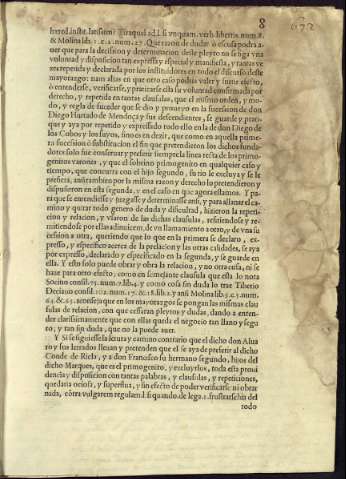 8
hered. instit. latissimè Tiraquel. ad l. si vnquam. verb. libertis. num. 8.
& Molina lib. 1. c. 2. num. 27. Que razon de dudar o escusa podra a-
uer que para la decision y determinacion deste pleyto no se siga vna
voluntad y disposicion tan expressa y especial y manifiesta, y tantas ve
zes repetida y declarada por los instituidores en todo el discurso deste
mayorazgo: mas altas en que otro caso podria valer y surtir efeto,
o entenderse, verificarse, y praticarse esta su voluntad conformada por
derecho, y repetida en tantas clausulas, que el mismo orden, y mo-
do, y regla de suceder que se dio y prouayo en la sucession de don
Diego Hurtado de Mendoça y sus descendientes, se guarde y prati-
que y aya por repetido y expressado todo ello en la de don Diego de
los Cobos y los suyos, sino es en dezir, que como en aquella prime-
ra sucession o substitucion el fin que pretendieron los dichos funda-
dores solo fue conseruar y preferir siempre la linea recta de los primo-
genitos varones, y que el sobrino primogenito en qualquier caso y
tiempo, que concurra con el hijo segundo, su tio le excluya y se le
prefiera, assi tambien por la misma razon y derecho lo pretendieron y
dispusieron en esta segunda, y en el caso en que agora estamos. Y pa-
ra que se entendiesse y juzgasse y determinasse assi, y para allanar el ca-
mino y quitar todo genero de duda y dificultad, hizieron la repeti-
cion y relacion, y vsaron de las dichas clausulas, refiriendose y re-
mitiendose por ellas adinuicem, de vn llamamiento a otro, y de vna su
cession a otra, queriendo que lo que en la primera se declaro, ex-
presso, y especifico acerca de la prelacion y las otras calidades, se aya
por expresso, declarado y especificado en la segunda, y se guarde en
ella. Y esto solo puede obrar y obra la relacion, y no otra cosa, ni se
haze para otro efecto, como en semejante clausula que esta lo nota
Socino consil. 75. num. 7. lib. 4. y como cosa sin duda lo trae Tiberio
Deciano consil. 102. num. 17. & 18. lib. 2. y assi Molina lib. 3. c. 5. num.
64. & 65. aconseja que en los mayorazgos se pongan las mismas clau
sulas de relacion, con que cessaran pleytos y dudas, dando a enten-
der clarissimamente que con ellas queda el negocio tan llano y segu
ro, y tan sin duda, que no la puede auer.
Y Si se siguiesse la letra y camino contrario que el dicho don Alua
ro y sus letrados lleuan y pretenden que el se aya de preferir al dicho
Conde de Ricla, y a don Francisco su hermano segundo, hijos del
dicho Marques, que es el primogenito, y excluyrlos, toda esta proui
dencia y disposicion con tantas palabras, y clausulas, y repeticiones,
quedaria ociosa, y superflua, y sin efecto de poder verificarse ni obrar
nada, côtra vulgarem regulam l. si quando. de lega. 1. frustrarse hia del
todo